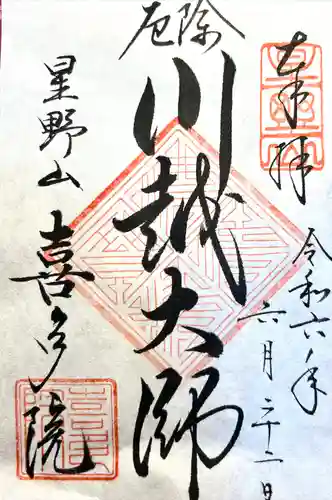 奉拝
令和六年
六月二十二日
厄除
川越大師
星野山
喜多院